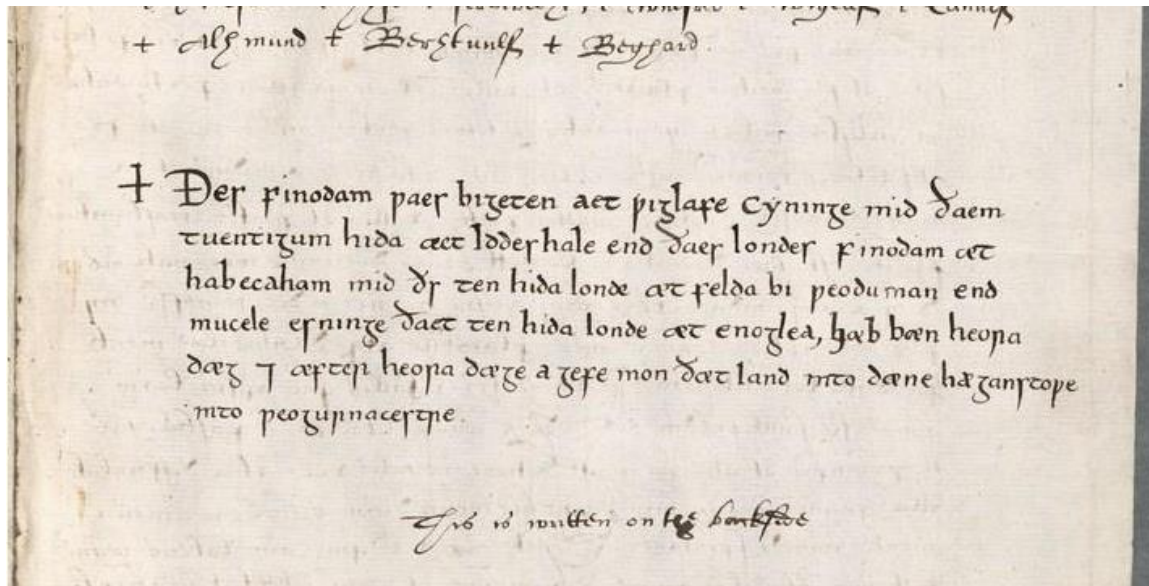 + Alhmund + Berhtuulf + Beghard.
+ Ðes friodam waes bigeten aet wiglafe cyninge mid ðaem
tuentigum hida æct Iddeshale end ðaes londes friodam æt
habecaham mid ðy ten hida londe æt felda bi weoduman end
mucele esninge ðaet ten hida londe æt enoglea, hæb bæn heora
dæg ⁊ æfter heora dæge a gefe mon ðæt land into dæne hæganstope
into weogurnacestre.
This is written on the backside